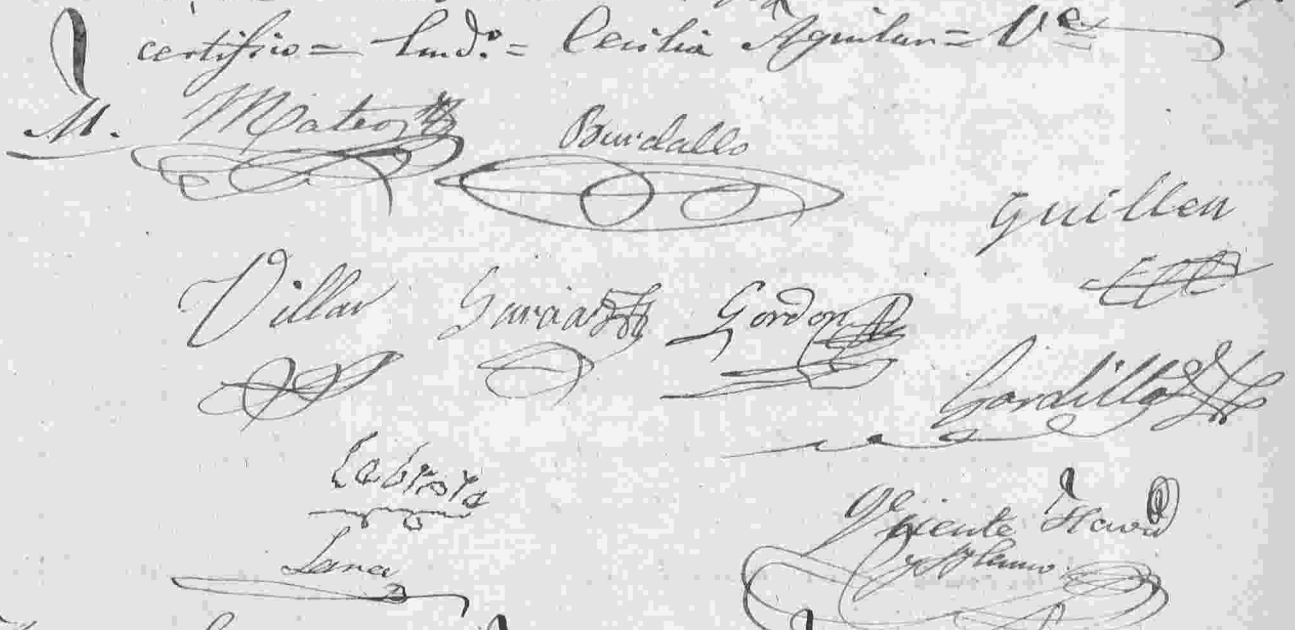 certifico = Emdº. = Cecilia Aguilar = Vᵉ
M. Mateos
Burdallo
Guillen
Villar Garcia Gordon
Gordillo
Labrora
Vicente
Lanea
y Blanco